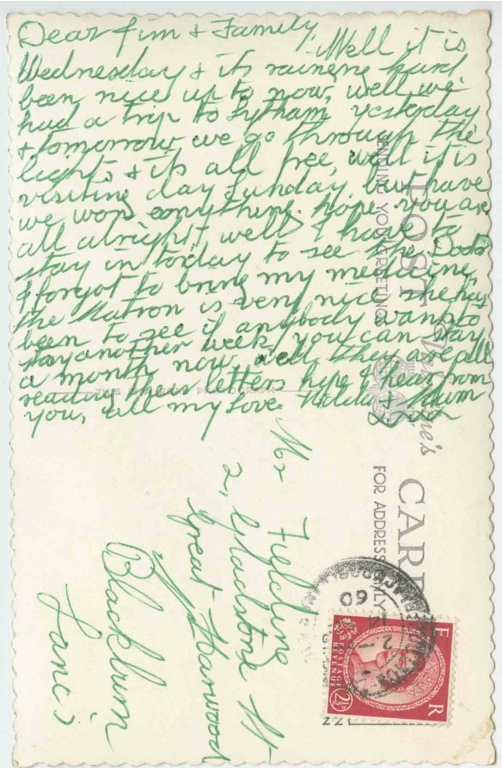 Dear Jim & Family, Well it is
Wednesday & its raineng hard
been nice up to now, well we
had a trip to Lytham yesterday
& tomorrow we go through the
lights & its all free, well it is
visiting day Sunday. but have
we won anything. hope you are
all alright, well I have to
stay in today to see the Doctor
I forgot to bring my medicine
the Matron is very nice she has
been to see if anybody wants to
stay another week, you can stay
a month now, well they are all
reading their letters hope I hear from
you, all my love Hilda & Mum
Mr Fielding
2, Gladstone St
Great Harwood
Nr Blackburn
Lancs
POST CARD
FOR ADDRESS ONLY
E R
POSTAGE REVENUE
2½D
60